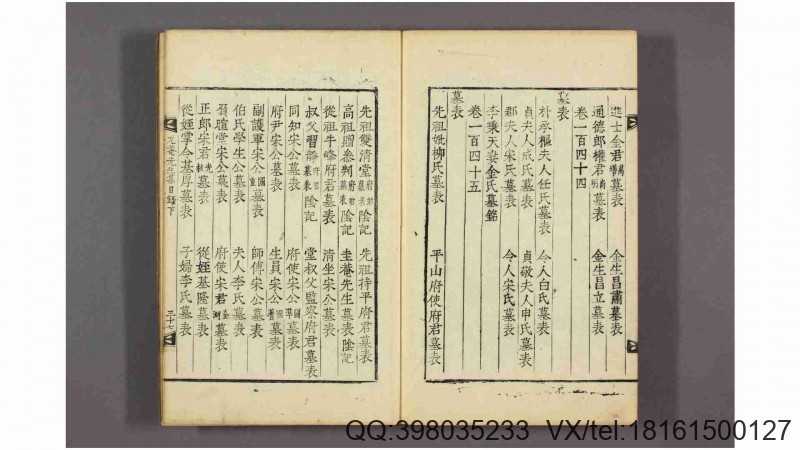 進士金君墓表 金生昌肅墓表
通德郎權君墓表 金生昌立墓表
卷一百四十四
墓表
朴承樞夫人任氏墓表 令人白氏墓表
貞夫人成氏墓表 貞敬夫人申氏墓表
郡夫人宋氏墓表 令人宋氏墓表
李秉天妻金氏墓銘
卷一百四十五
墓表
先祖妣柳氏墓表 平山府使府君墓表
先祖雙清堂府君墓表陰記 先祖持平府君墓表
高祖贈參判府君墓表陰記 圭菴先生墓表陰記
從祖牛峰府君墓表 清坐宋公墓表
叔父習靜府君墓表陰記 堂叔父監察府君墓表
同知宋公墓表 府使宋公墓表
府尹宋公墓表 生員宋公墓表
副護軍宋公墓表 師傅宋公墓表
伯氏學生公墓表 夫人李氏墓表
宋公墓表 府使宋君墓表
正郎宋君墓表 從姪基隆墓表
從姪掌令基厚墓表 子婦李氏墓表
宋子大全目錄下 三十七
QQ:398035233 VX/tel:18161500127